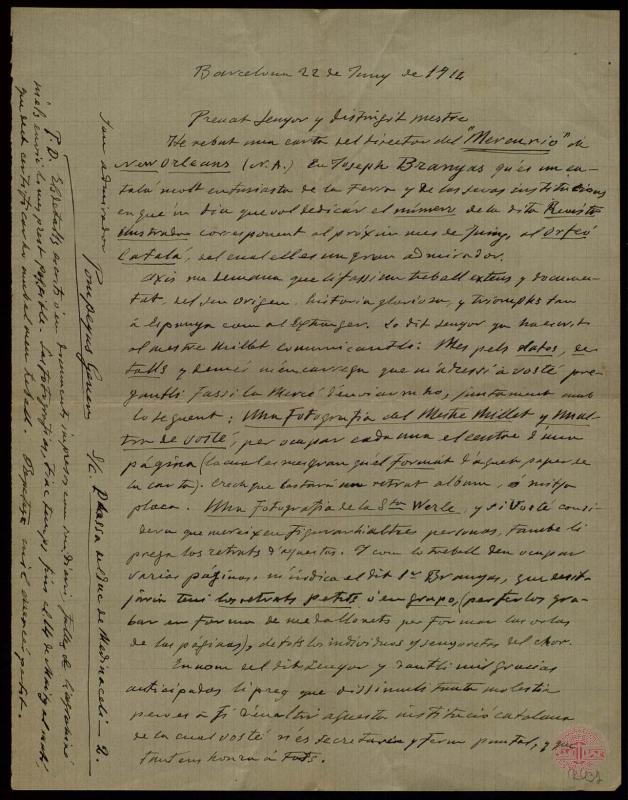 Barcelona 22 de Juny de 1912
Preuat senyor y distingit mestre
He rebut una carta del director del "Mercurio" de
New Orleans (N.A.) En Joseph Branyas qu'es un ca-
talá molt entusiasta de la terra y de las sevas institucions
en que'm diu que vol dedicár el número de la dita Revista
ilustrada corresponent al próxim mes de Juny, al Orfeó
Catalá, del cual ell es un gran admirador.
Axis me demana que li fassi un treball extens y documen-
tat, del seu origen, historia gloriosa, y triomphs tan
á Espanya com al Extranger. Lo dit senyor ya ha escrit
al mestre Millet comunicantli. Mes pels datos, de-
talls y demés m'encarrega que m'adressi á vosté pre-
gantli fassi la Mercé d'enviarmho, juntament amb
lo seguent: Una Fotografia del Mestre Millet y un al-
tra de vosté, per ocupar cada una el centre d'una
página (la cual es mes gran qu'el format d'aquet paper de
la carta). Crech que bastará un retrat album, ó mitja
placa. Una Fotografia de la Sta Werle, y si Vosté consi-
dera que mereixen figurarhi altres personas, tambe li
prega los retrats d'aquestas. Y com lo treball deu ocupar
varias páginas, m'indica el dit Sr Branyas, que desit-
jaria tenir los retrats petits ó en grupo, (per ferlos gra-
bar en forma de medallonets per formar las orlas
de las páginas), de tots los individuos y senyoretas del chor.
En nom del dit senyor y dantli mil gracias
anticipadas li prego que dissimuli tanta molestia
per ves á fi d'enaltir aquesta institució catalana
de la cual vosté n'es secretari y ferm puntal, y que
tant ens honra á tots.
Son admirador
Pompeyus Gener
S/c. Plassa del Duc de Medinaceli - 2.
P.D. Els detalls escrits ó en documents impresos em
mels envie lo mes prest possible. Las fotografias, tinc temps fins al 14 de
que dech certificarho amb el meu treball.